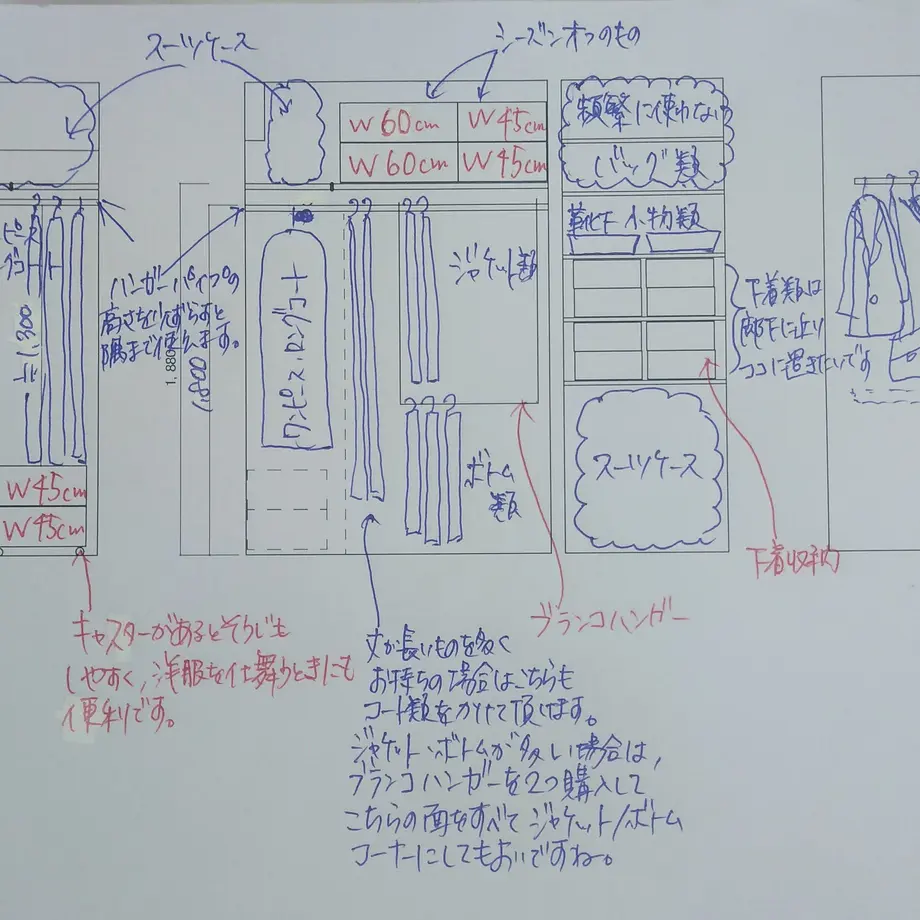 スーツケース
シーズンオフのもの
W60cm
W45cm
W60cm
W45cm
頻繁に使わない
バッグ類
靴下 小物類
ハンガーパイプの
高さを少しずらすと
隅まで使えます。
ワンピース、ロングコート
ジャケット類
ボトム
類
1,880
1,800
1,300
下着類は
廊下に近い
ココに置きたいです
スーツケース
W45cm
W45cm
下着収納
ブランコハンガー
キャスターがあるとそうじも
しやすく、洋服を仕舞うときにも
便利です。
丈が長いものを多く
お持ちの場合はこちらも
コート類をかけて頂けます。
ジャケット・ボトムが多い場合は、
ブランコハンガーを2つ購入して
こちらの面をすべてジャケット/ボトム
コーナーにしてもよいですね。